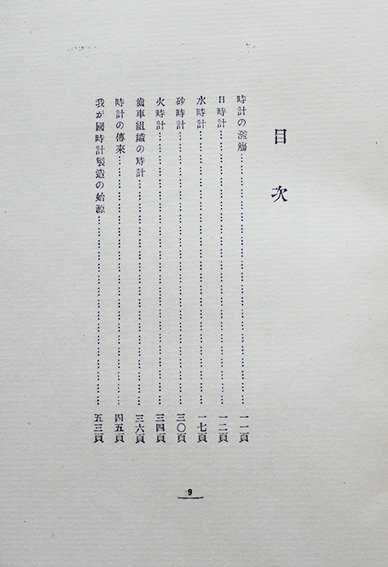 目次
時計の濫觴……一一頁
日時計……一二頁
水時計……一七頁
砂時計……三〇頁
火時計……三四頁
齒車組織の時計……三六頁
時計の傳來……四五頁
我が國時計製造の始源……五三頁
9